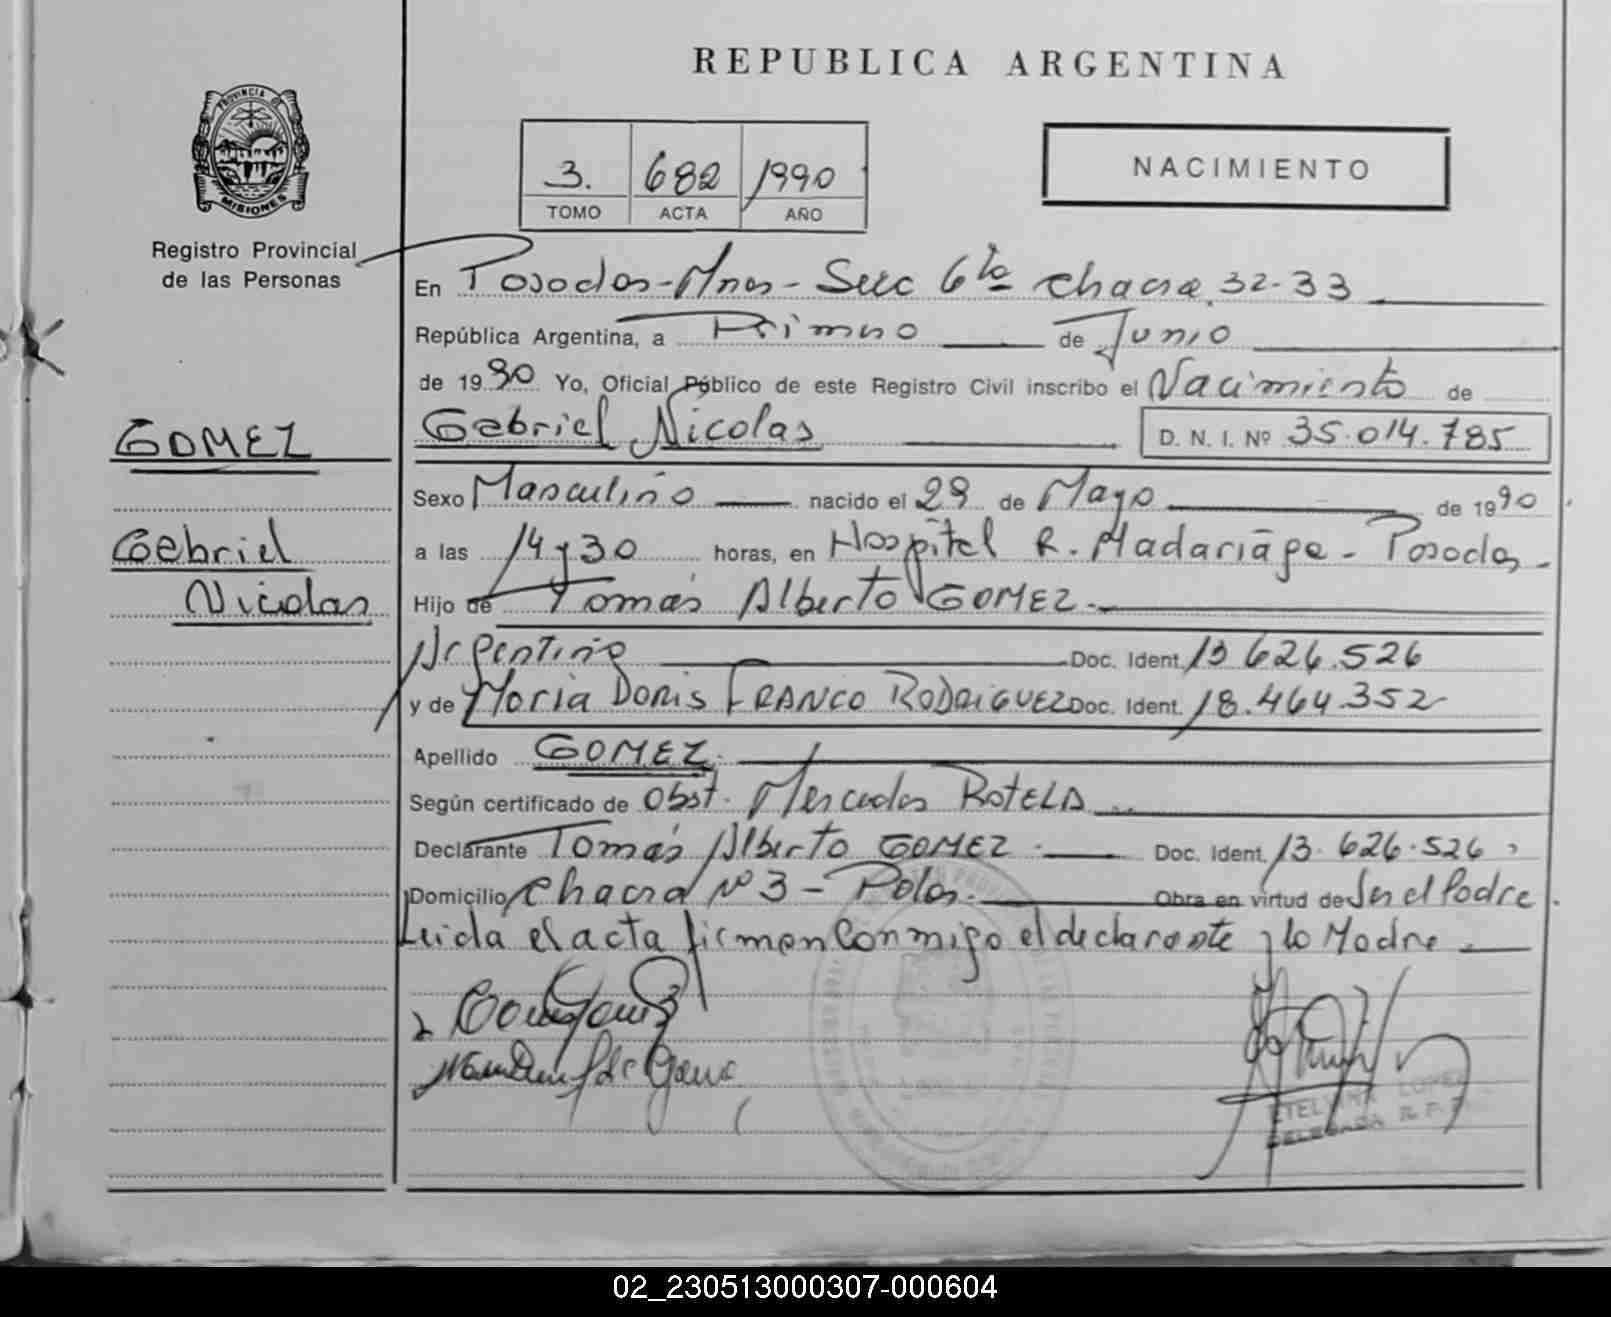 REPUBLICA ARGENTINA
PROVINCIA DE
MISIONES
Registro Provincial
de las Personas
3. 682 1990
TOMO ACTA AÑO
NACIMIENTO
En Posadas-Mnes- Secc 6ta chacra 32-33
República Argentina, a Primero de Junio
de 1990 Yo, Oficial Público de este Registro Civil inscribo el Nacimiento de
Gabriel Nicolas D. N. I. Nº 35.014.785
GOMEZ
Gabriel
Nicolas
Sexo Masculino nacido el 29 de Mayo de 1990
a las 14 y 30 horas, en Hospital R. Madariaga - Posadas -
Hijo de Tomás Alberto GOMEZ.-
Argentino Doc. Ident. 13 626.526
y de Maria Doris FRANCO RODRIGUEZ Doc. Ident. 18.464.352
Apellido GOMEZ.
Según certificado de Obst. Mercedes ROTELA
Declarante Tomás Alberto GOMEZ. Doc. Ident. 13.626.526
Domicilio Chacra Nº 3 - Pdas. Obra en virtud de Ser el Padre.
Leida el acta firman Conmigo el declarante y la Madre.
ETELVINA LOPEZ
DELEGADA R. P.
02_230513000307-000604